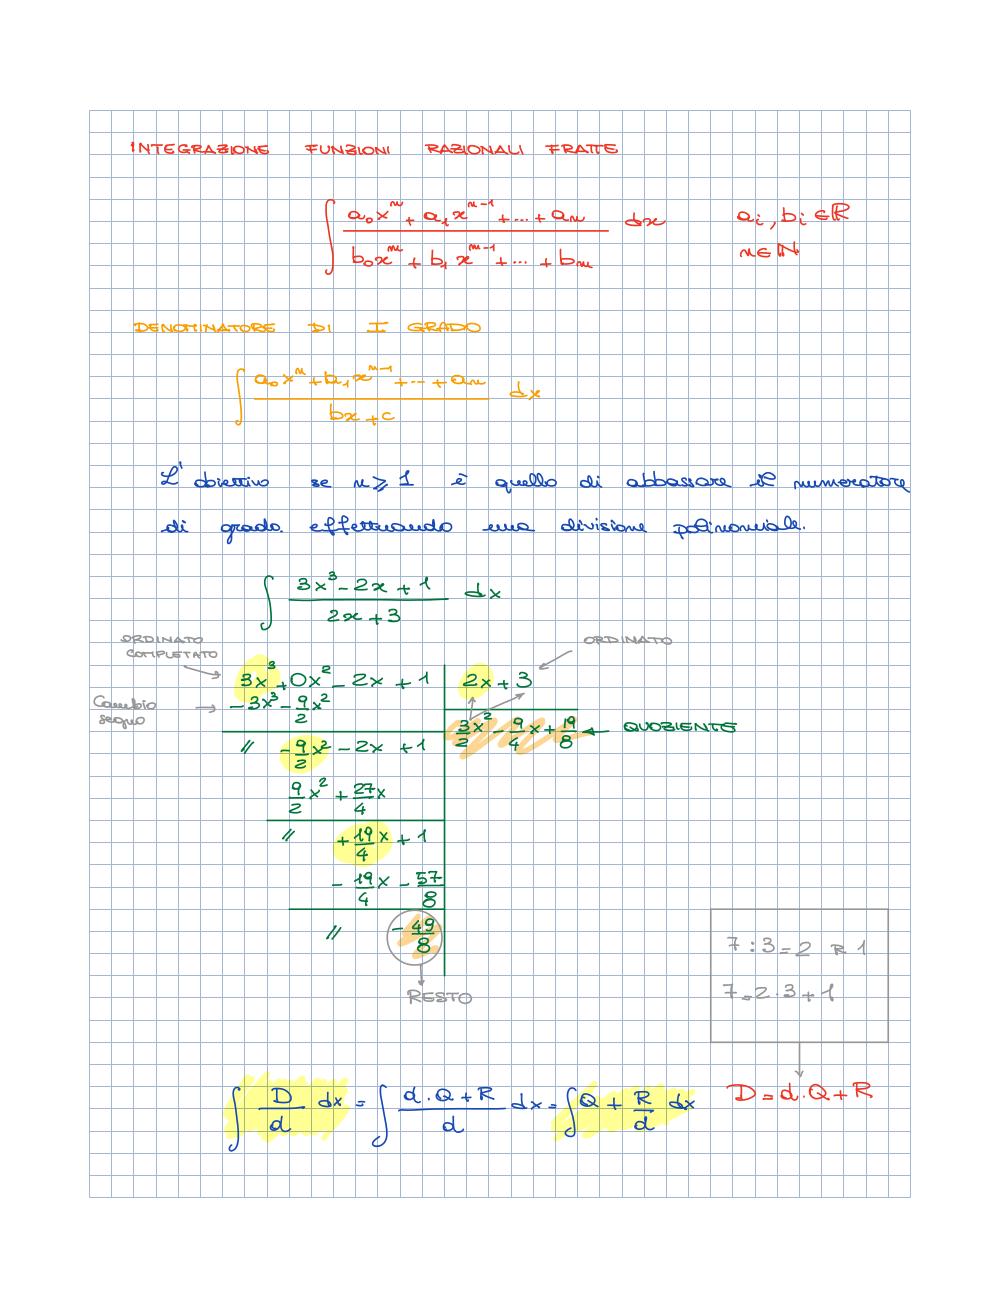 INTEGRAZIONE FUNZIONI RAZIONALI FRATTE
∫ (a₀xⁿ + a₁xⁿ⁻¹ + ... + aₙ) / (b₀xᵐ + b₁xᵐ⁻¹ + ... + bₘ) dx aᵢ, bᵢ ∈ ℝ
n ∈ ℕ
DENOMINATORE DI I GRADO
∫ (a₀xⁿ + b₁xⁿ⁻¹ + ... + aₙ) / (bx + c) dx
L'obiettivo se n ⩾ 1 è quello di abbassare il numeratore
di grado effettuando una divisione polinomiale.
∫ (3x³ - 2x + 1) / (2x + 3) dx
ORDINATO
COMPLETATO
ORDINATO
3x³ + 0x² - 2x + 1 | 2x + 3
Cambio
segno
- 3x³ - 9/2 x²
3/2 x² - 9/4 x + 19/8 ← QUOZIENTE
// - 9/2 x² - 2x + 1
9/2 x² + 27/4 x
// + 19/4 x + 1
- 19/4 x - 57/8
// - 49/8
RESTO
7 : 3 = 2 R 1
7 = 2 · 3 + 1
D = d · Q + R
∫ D/d dx = ∫ (d · Q + R)/d dx = ∫ Q + R/d dx